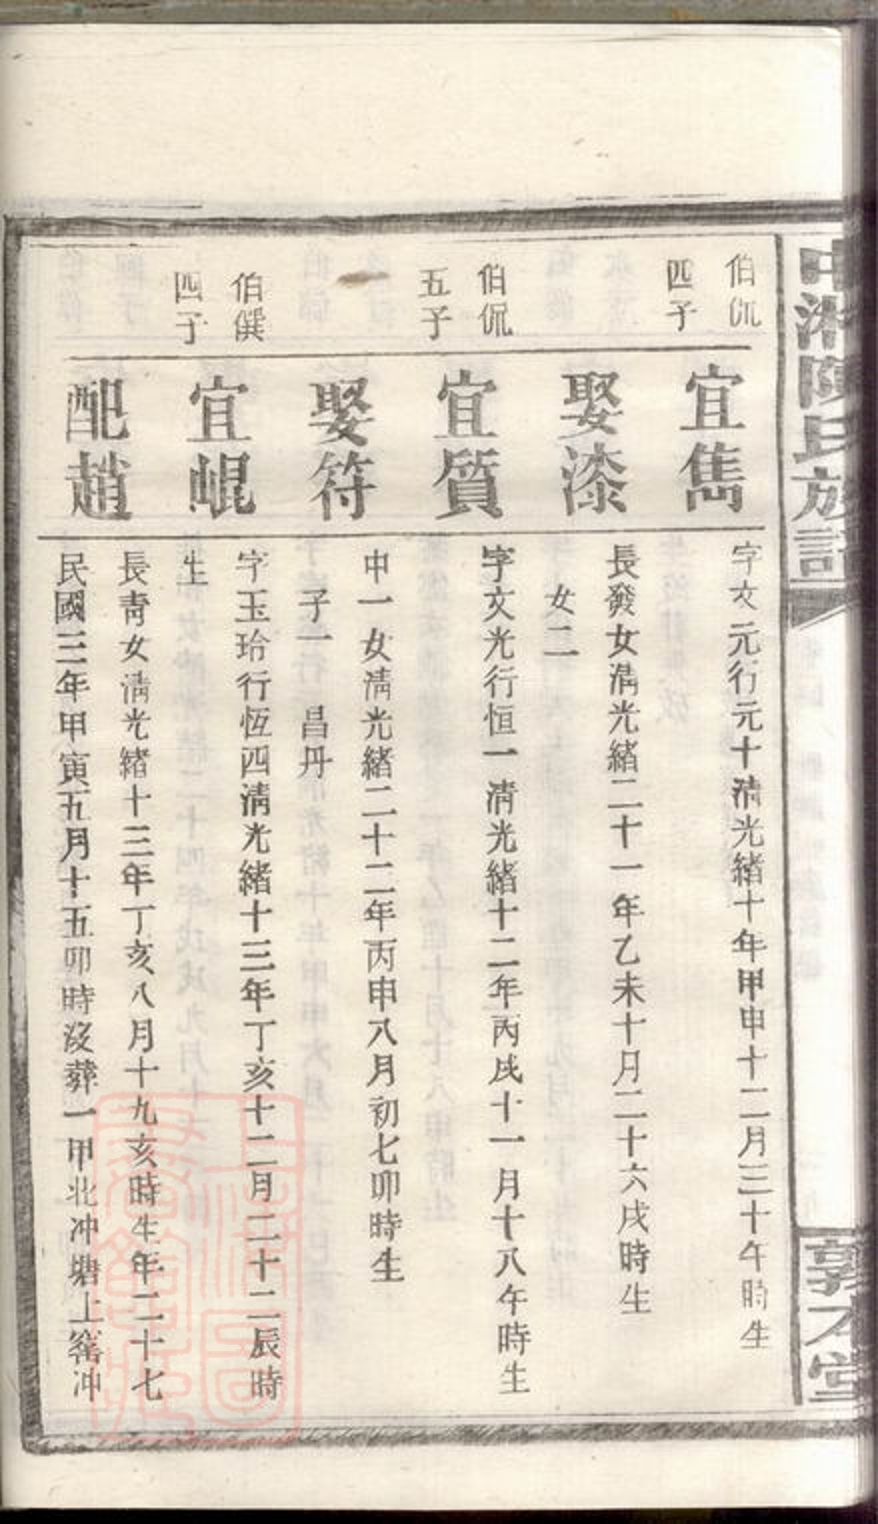 中湘陳氏族譜
敦本堂
伯侃
四子
宜雋
字文元行元十清光緒十年甲申十二月三十午時生
娶漆
長發女清光緒二十一年乙未十月二十六戌時生
女二
伯侃
五子
宜質
字文光行恒一清光緒十二年丙戌十一月十八午時生
娶符
中一女清光緒二十二年丙申八月初七卯時生
子一 昌丹
伯僎
四子
宜崐
字玉珨行恆四清光緒十三年丁亥十二月二十二辰時
生
配趙
長青女清光緒十三年丁亥八月十九亥時生年二十七
民國三年甲寅五月十五卯時沒葬一甲北冲塘上窰冲